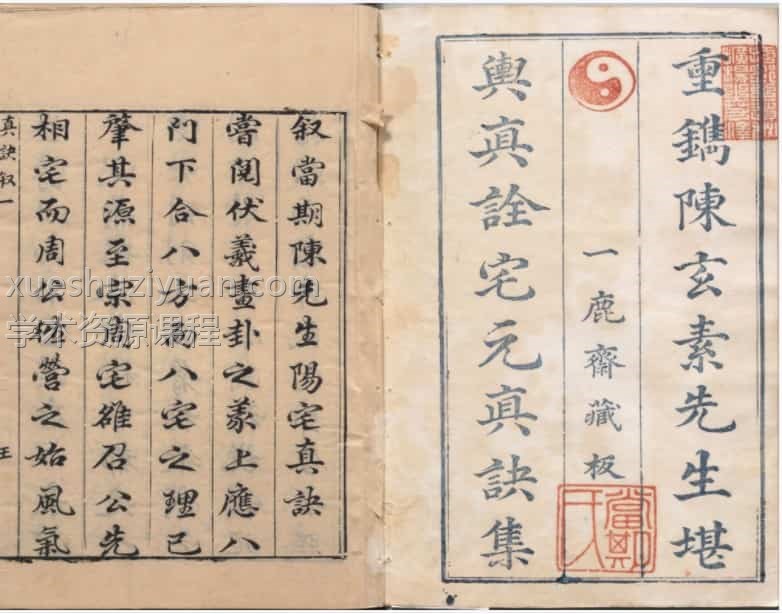 重鐫陳玄素先生堪
一鹿齋藏板
輿真詮宅元真訣集
當期
叙當期陳先生陽宅真訣
嘗閱伏羲畫卦之義上應八
門下合八方為八宅之理已
肇其源至宗周宅雒召公先
相宅而周公營之始風氣
真訣叙一
王
xueshuziyuan.com
学术资源课程